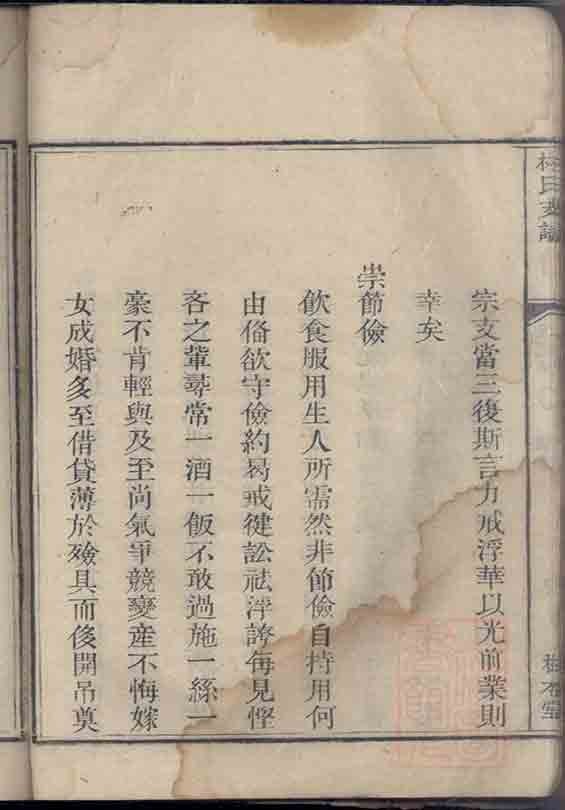 氏支譜
宗支當三後斯言力戒浮華以光前業則
幸矣
崇節儉
飲食服用生人所需然非節儉自持用何
由俻欲守儉約曷戒健訟祛浮誇每見慳
吝之輩尋常一酒一飯不敢過施一絲一
豪不肯輕與及至尚氣爭競變産不悔嫁
女成婚多至借貸薄於殮具而後開吊奠